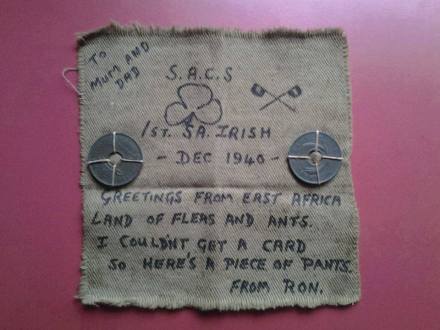 TO
MUM AND
DAD
S.A.C.S
1ST. SA. IRISH
- DEC 1940 -
GREETINGS FROM EAST AFRICA
LAND OF FLEAS AND ANTS.
I COULDN'T GET A CARD
SO HERE'S A PIECE OF PANTS.
FROM RON.